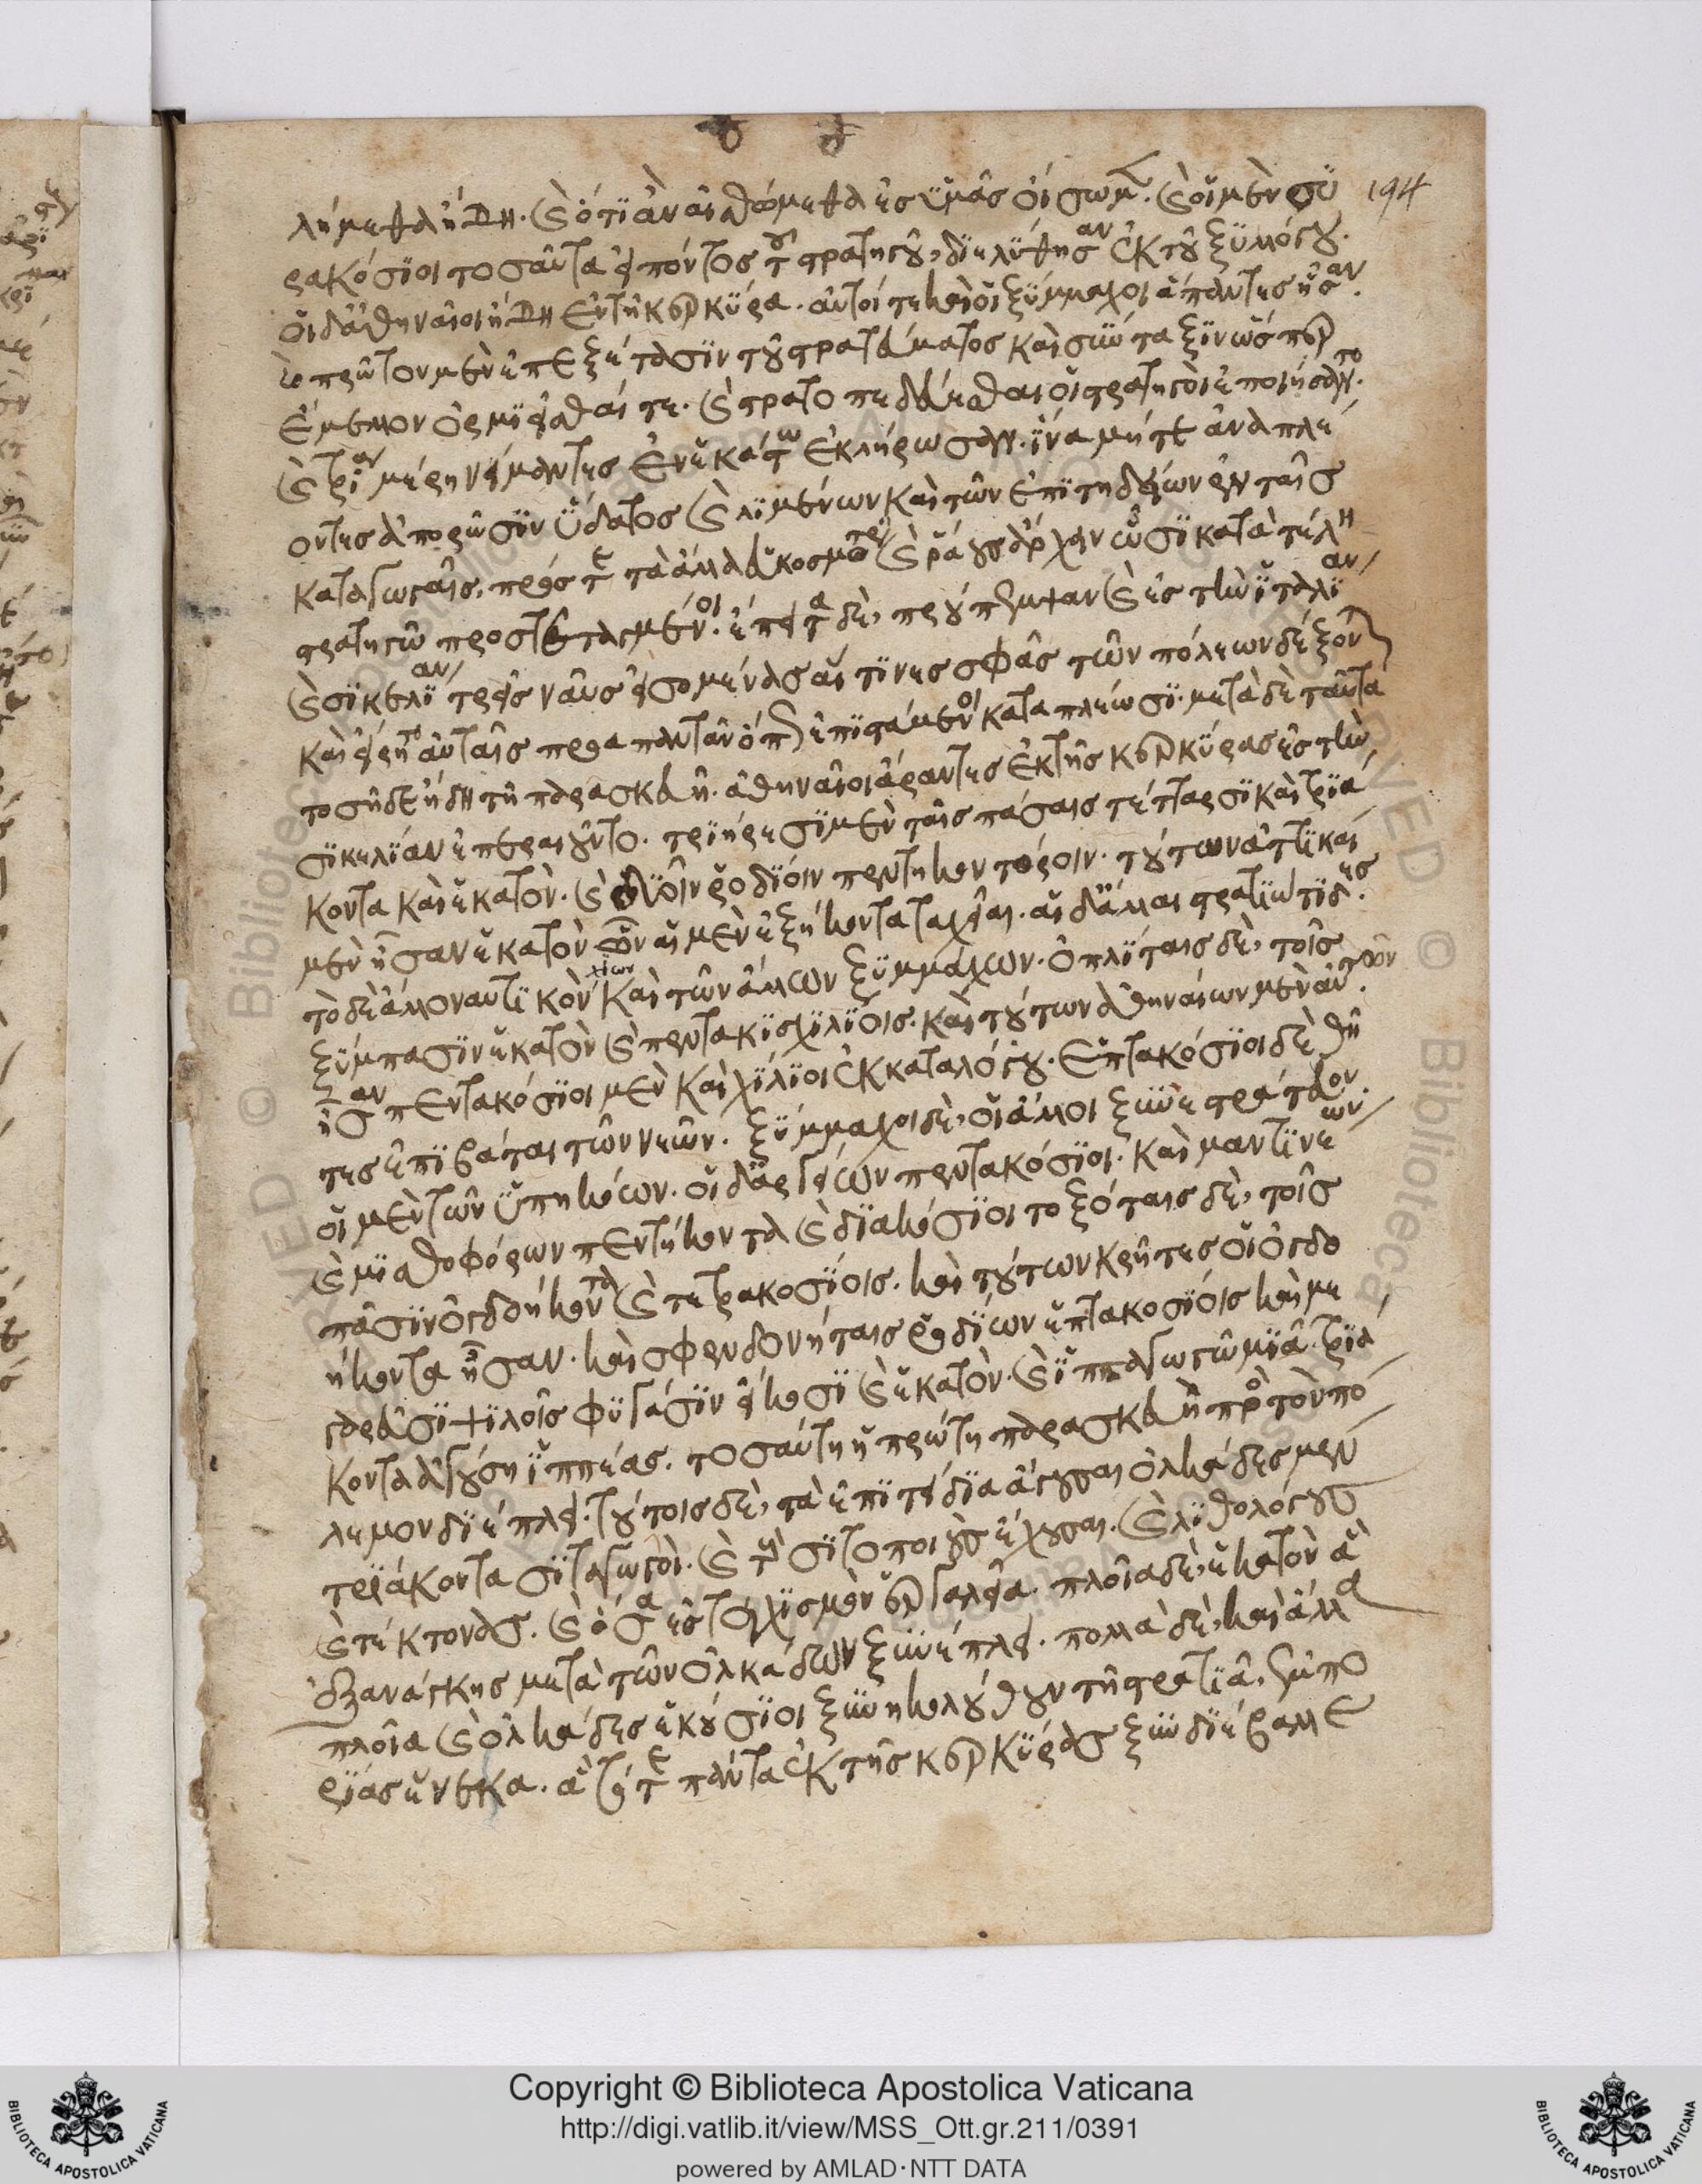 194
λήμεθα ἤδη. καὶ ὅτι ἂν αἰσθώμεθα ἐς ὑμᾶς οἴσομεν. καὶ οἱ μὲν συ
ρακόσιοι τοσαῦτα εἰπόντος τοῦ στρατηγοῦ, διελύθησαν ἐκ τοῦ ξυλλόγου.
οἱ δ' ἀθηναῖοι ἤδη ἐν τῆ κερκύρα. αὐτοί τε καὶ οἱ ξύμμαχοι ἅπαντες ἦσαν.
καὶ πρῶτον μὲν ἐπεξέτασιν τοῦ στρατεύματος καὶ σύνταξιν ὥσπερ
ἔμελλον ὁρμιεῖσθαί τε. καὶ στρατοπεδεύεσθαι οἱ στρατηγοὶ ἐποιήσαντο.
καὶ τρία μέρη νείμαντες ἓν ἑκάστω ἐκλήρωσαν. ἵνα μήτε ἅμα πλέ
οντες ἀπορῶσιν ὕδατος καὶ λιμένων καὶ τῶν ἐπιτηδείων ἐν ταῖς
καταγωγαῖς. πρός τε τὰ ἄλλα εὐκοσμότεροι καὶ ῥάους ἄρχειν ὦσι κατὰ τέλη
στρατηγῶ προστεταγμένοι. ἔπειτα δὲ, προύπεμψαν καὶ ἐς τὴν ἰταλίαν
καὶ σικελίαν τρεῖς ναῦς εἰσομένας αἵ τινες σφᾶς τῶν πόλεων δέξον
καὶ εἴρητο αὐταῖς προαπαντᾶν ὅπως ἐπιστάμενοι καταπλέωσι. μετὰ δὲ ταῦτα
τοσῆδε ἤδη τῆ παρασκευῆ. ἀθηναῖοι ἄραντες ἐκ τῆς κερκύρας ἐς τὴν
σικελίαν ἐπεραιοῦντο. τριήρεσι μὲν ταῖς πάσαις τέτταρσι καὶ τριά
κοντα καὶ ἑκατὸν. καὶ δυοῖν ῥοδίοιν πεντηκοντόροιν. τούτων ἀττικαὶ
μὲν ἦσαν ἑκατὸν ὧν αἱ μὲν ἑξήκοντα ταχεῖαι. αἱ δ' ἄλλαι στρατιώτιδες.
τὸ δὲ ἄλλο ναυτικὸν χίων καὶ τῶν ἄλλων ξυμμάχων. ὁπλίταις δὲ, τοῖς
ξύμπασιν ἑκατὸν καὶ πεντακισχιλίοις. καὶ τούτων ἀθηναίων μὲν αὐτῶν
ἦσαν πεντακόσιοι μὲν καὶ χίλιοι ἐκ καταλόγου. ἑπτακόσιοι δὲ θῆ
τες ἐπιβάται τῶν νεῶν. ξύμμαχοι δὲ, οἱ ἄλλοι ξυνεστράτευον.
οἱ μὲν τῶν ὑπηκόων. οἱ δ' ἀργείων πεντακόσιοι. καὶ μαντινέων
καὶ μισθοφόρων πεντήκοντα καὶ διακόσιοι τοξόταις δὲ, τοῖς
πᾶσιν ὀγδοήκοντα καὶ τετρακοσίοις. καὶ τούτων κρῆτες οἱ ὀγδο
ήκοντα ἦσαν. καὶ σφενδονήταις ῥοδίων ἑπτακοσίοις καὶ με
γαρεῦσι ψιλοῖς φυγάσιν εἴκοσι καὶ ἑκατὸν. καὶ ἱππαγωγῶ μιᾶ. τριά
κοντα ἀγούση ἱππέας. τοσαύτη ἡ πρώτη παρασκευὴ πρὸς τὸν πό
λεμον διέπλει. τούτοις δὲ, τὰ ἐπιτήδεια ἄγουσαι ὁλκάδες μὲν
τριάκοντα σιταγωγοὶ. καὶ τοὺς σιτοποιοὺς ἔχουσαι. καὶ λιθολόγους
καὶ τέκτονας. καὶ ὅσα ἐς τειχισμὸν ἐργαλεῖα. πλοῖα δὲ, ἑκατὸν ἃ
ἐξ ἀνάγκης μετὰ τῶν ὁλκάδων ξυνέπλει. πολλὰ δὲ, καὶ ἄλλα
πλοῖα καὶ ὁλκάδες ἑκούσιοι ξυνηκολούθουν τῆ στρατιᾶ. ἐμπο
ρίας ἕνεκα. ἃ τότε πάντα ἐκ τῆς κερκύρας ξυνδιέβαλλε
Copyright © Biblioteca Apostolica Vaticana
http://digi.vatlib.it/view/MSS_Ott.gr.211/0391
powered by AMLAD·NTT DATA
BIBLIOTECA APOSTOLICA VATICANA
BIBLIOTECA APOSTOLICA VATICANA